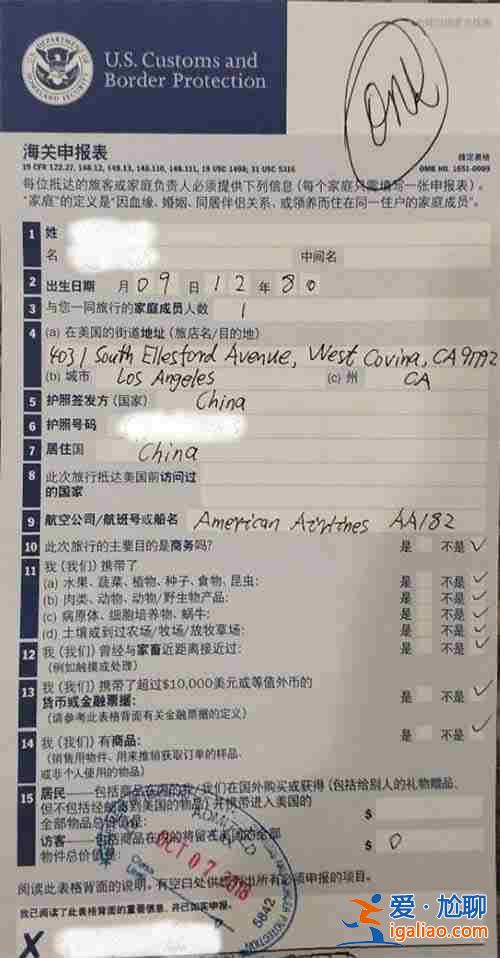 U.S. DEPARTMENT OF HOMELAND SECURITY
U.S. Customs and
Border Protection
ONK
海关申报表
核定表格
19 CFR 122.27, 148.12, 148.13, 148.110, 148.111, 19 USC 1498; 31 USC 5316
OMB NO. 1651-0009
每位抵达的旅客或家庭负责人必须提供下列信息(每个家庭只需填写一张申报表)。
“家庭”的定义是“因血缘、婚姻、同居伴侣关系、或领养而住在同一住户的家庭成员”。
1 姓
名 中间名
2 出生日期 月 09 日 12 年 80
3 与您一同旅行的家庭成员人数 1
4 (a) 在美国的街道地址 (旅店名/目的地)
4031 South Ellesford Avenue, West Covina, CA 91792
(b) 城市 Los Angeles (c) 州 CA
5 护照签发方 (国家) China
6 护照号码
7 居住国 China
8 此次旅行抵达美国前访问过
的国家
9 航空公司/航班号或船名 American Airlines AA182
10 此次旅行的主要目的是商务吗? 是 不是 ✓
11 我 (我们) 携带了
(a) 水果、蔬菜、植物、种子、食物、昆虫: 是 不是 ✓
(b) 肉类、动物、动物/野生物产品: 是 不是 ✓
(c) 病原体、细胞培养物、蜗牛: 是 不是 ✓
(d) 土壤或到过农场/牧场/放牧草场: 是 不是 ✓
12 我 (我们) 曾经与家畜近距离接近过: 是 不是 ✓
(例如触摸或处理)
13 我 (我们) 携带了超过$10,000美元或等值外币的
货币或金融票据: 是 不是 ✓
(请参考此表格背面有关金融票据的定义)
14 我 (我们) 有商品: 是 不是 ✓
(销售用物件、用来推销获取订单的样品、
或非个人使用的物品)
15 居民——包括商品在内的我/我们在国外购买或获得 (包括给别人的礼物赠品、
但不包括经邮寄到美国的物品) 并携带进入美国的
全部物品总价值是: $
访客——包括商品在内的将留在美国的全部
物件总价值是: $ 0
ADMITTED
Class
OCT 07 2018
5842
阅读此表格背面的说明。有空白处供您列出所有必须申报的项目。
我已阅读了此表格背面的重要信息、并已如实申报。
X
爱·尬聊
igaliao.com